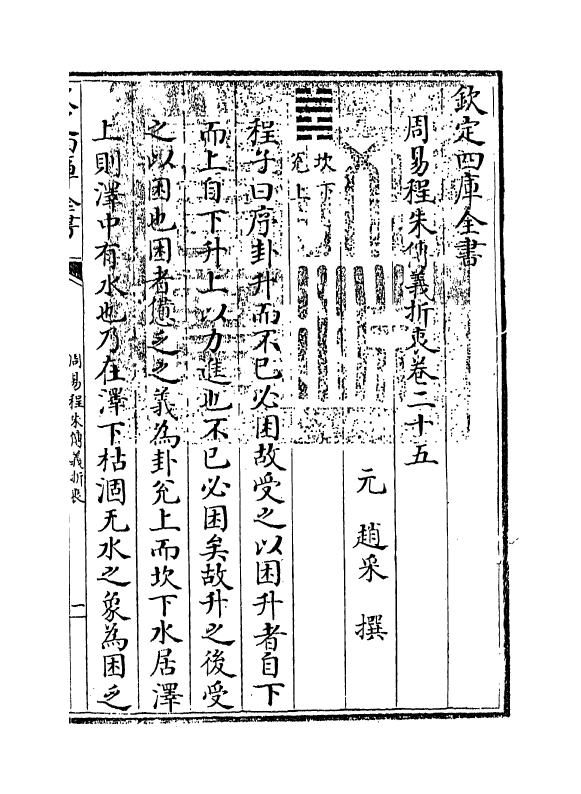 欽定四庫全書
周易程朱傳義折衷卷二十五
元 趙采 撰
坎下
兊上
程子曰序卦升而不已必困故受之以困升者自下
而上自下升上以力進也不已必困矣故升之後受
之以困也困者憊乏之義為卦兊上而坎下水居澤
上則澤中有水也乃在澤下枯涸无水之象為困乏
周易程朱傳義折衷